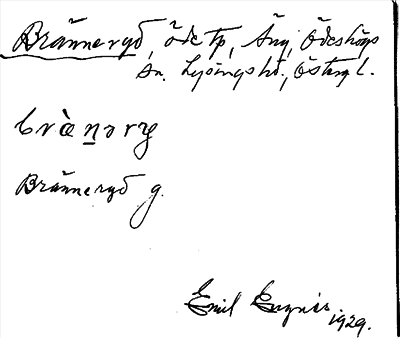 Bränneryd, öde tp, Äng, Ödeshögs
sn. Lysings hd., Östergl.
brὰn̠ əry
Bränneryd g.
Emil 1929.